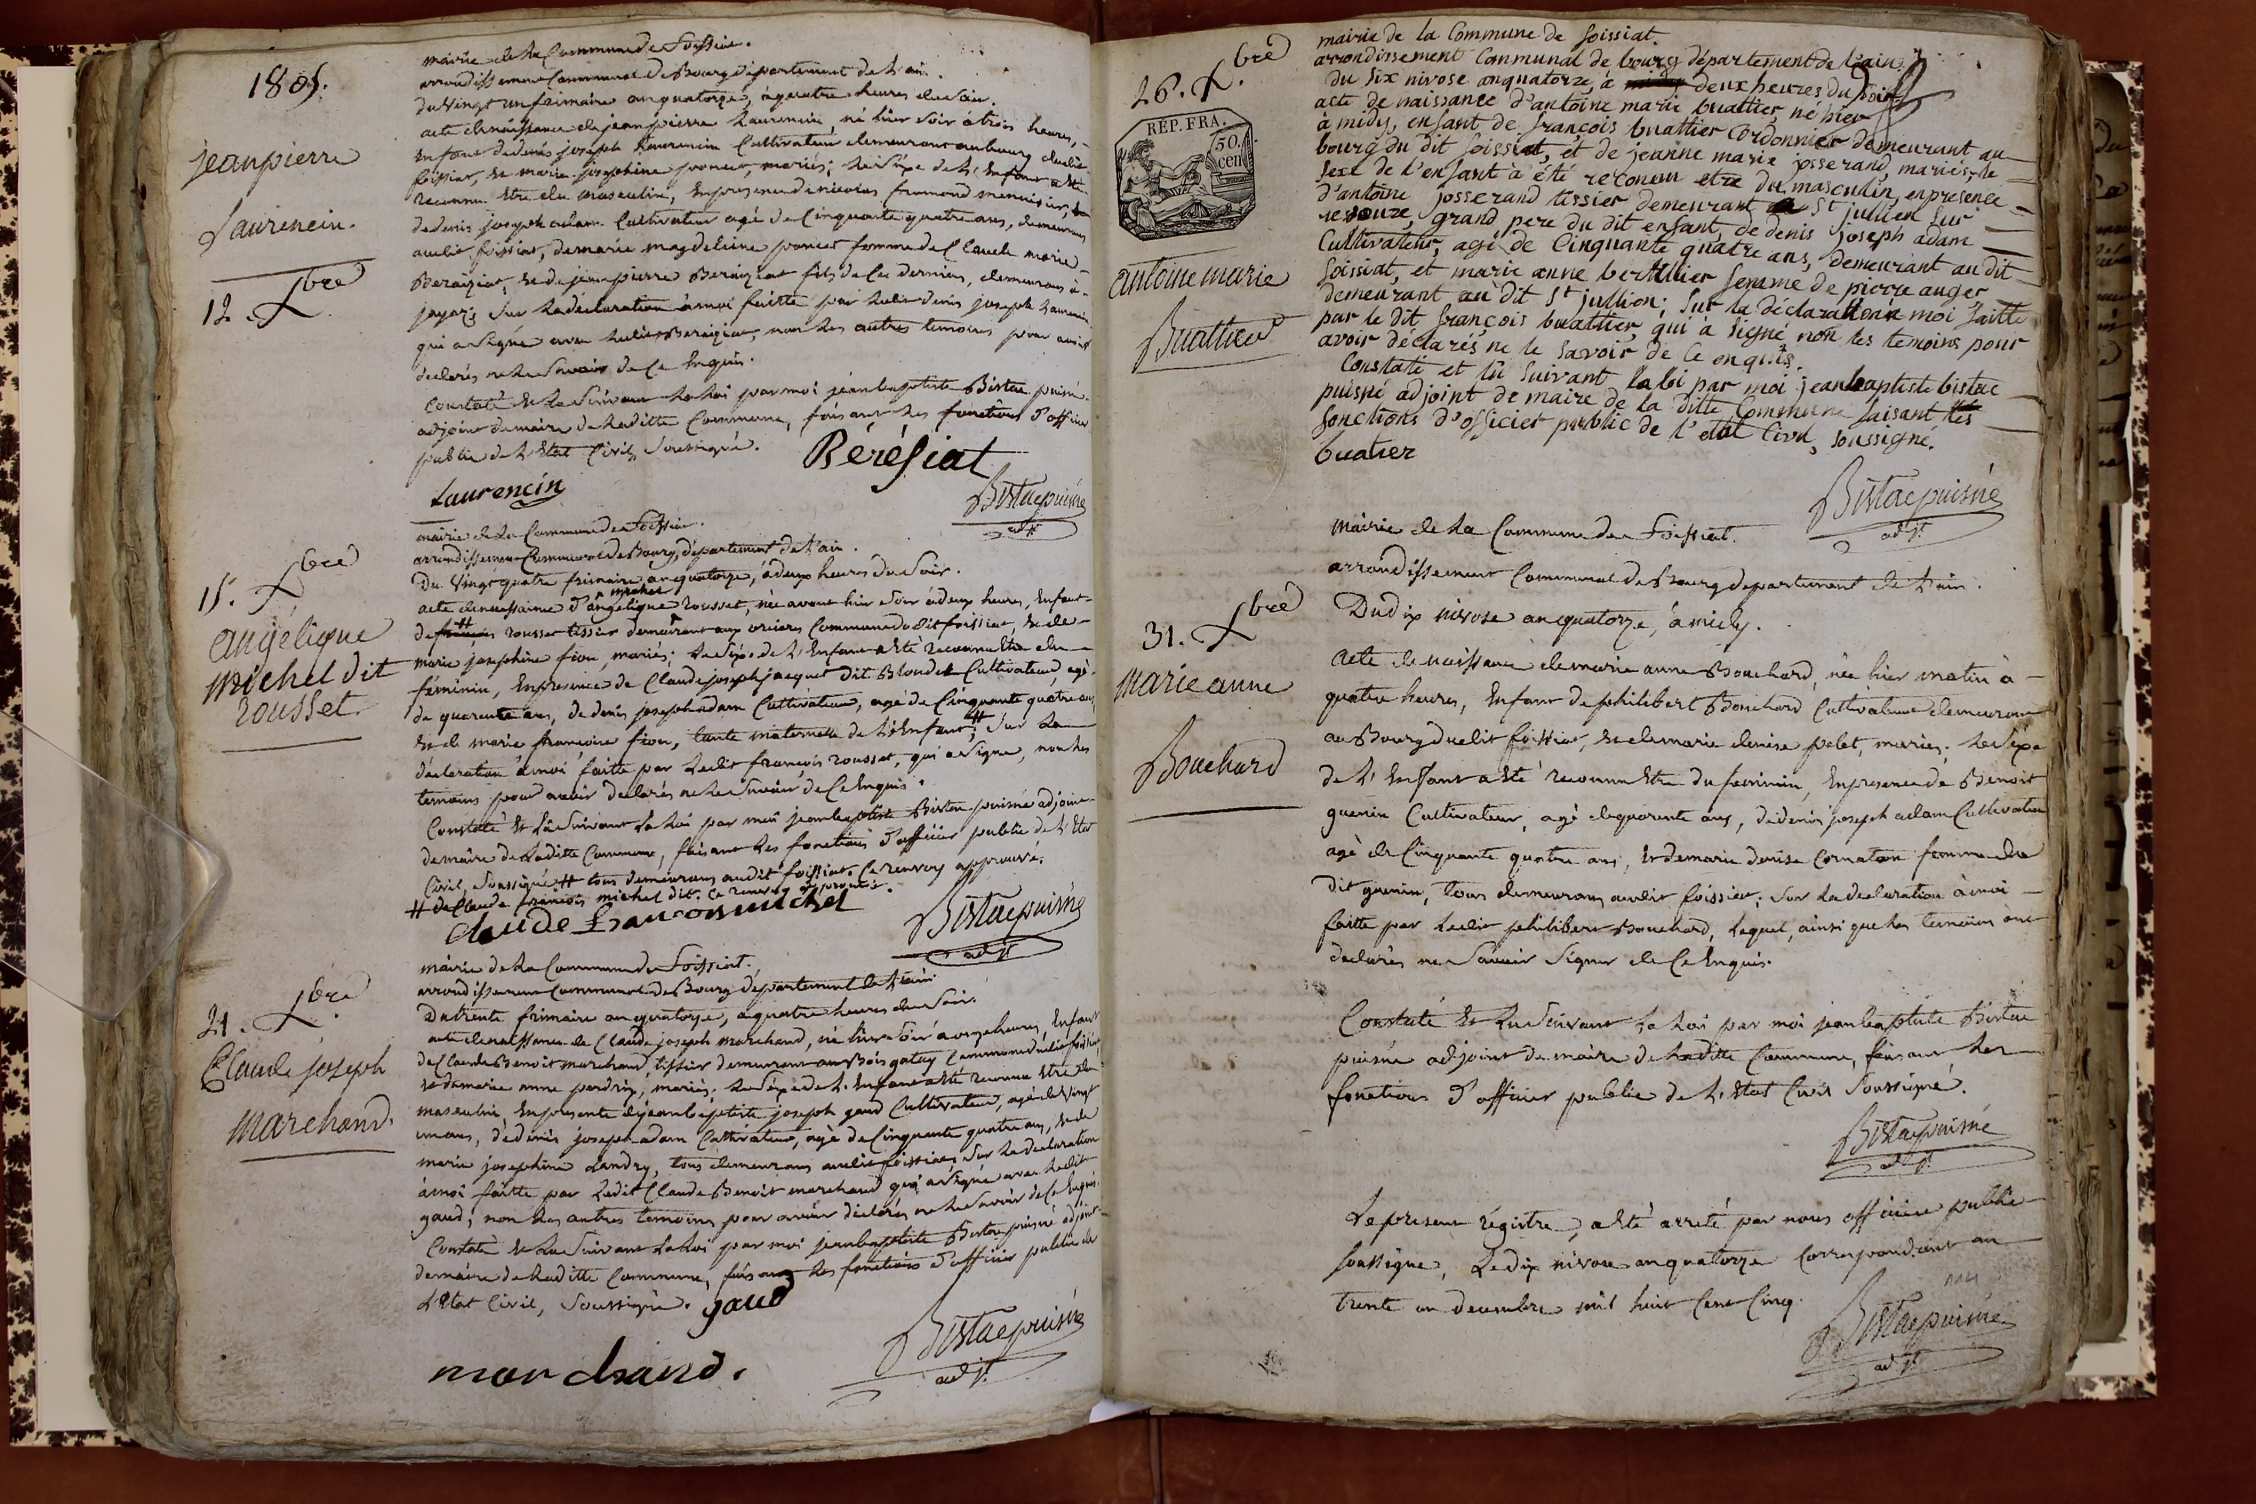 1805.
jeanpierre
Laurencin.
12. Xbre
mairie de la Commune de Foissiat.
arrondissement Communal de Bourg département de l'ain.
du Vingt un frimaire an quatorze, à quatre heures du soir.
acte de naissance de jeanpierre Laurencin, né hier soir à trois heures,
Enfant de denis joseph Laurencin Cultivateur demeurant au bourg dudit
foissiat, et de marie josephine poncet, mariés; le sexe de l'Enfant a été
reconnu Etre du masculin, En presence de nicolas fremond menuisier,
de denis joseph adam Cultivateur agé de Cinquante quatre ans, demeurans
audit foissiat, de marie magdeleine poncet femme de Claude marie
Beraiziat, et de jean pierre Beraiziat fils de ce dernier, demeurans à
jayat; sur la declaration à moi faitte par ledit denis joseph Laurencin
qui a signé avec ledit Beraiziat, non les autres temoins pour avoir
declarés ne le savoir de ce Enquis.
Constaté et lu suivant la loi par moi jeanbaptiste Bistac puisné
adjoint de maire de laditte Commune, faisant les fonctions d'officier
public de l'Etat Civil, soussigné.
Laurencin
Berésiat
Bistac puisné
adjt
15. Xbre
angélique
michel dit
rousset
mairie de la Commune de Foissiat.
arrondissement Communal de Bourg, département de l'ain.
Du Vingt quatre frimaire an quatorze, à deux heures du soir.
acte de naissance d'angelique michel rousset, née avant hier soir à deux heures, Enfant
de # rousset tissier demeurant aux oriers Commune dudit foissiat, et de
marie josephine fion, mariés; le sexe de l'Enfant a été reconnu Etre du
féminin, En presence de Claude joseph jacquet dit Blondet Cultivateur, agé
de quarente ans, de denis joseph adam Cultivateur, agé de Cinquante quatre ans
et de marie françoise fion, tante maternelle de l'Enfant, # sur la
déclaration à moi faitte par ledit françois rousset, qui a signé, non les
temoins pour avoir declarés ne le savoir de Ce Enquis.
Constaté et lu suivant la loi par moi jeanbaptiste Bistac puisné adjoint
de maire de laditte Commune, faisant les fonctions d'officier public de l'Etat
Civil, soussigné. # tous demeurans audit foissiat. Ce renvoy approuvé.
# de Claude françois michel dit. Ce renvoy approuvé.
claude francois michel
Bistac puisné
adjt
21. Xbre
Claude joseph
marchand.
mairie de la Commune de Foissiat.
arrondissement Communal de Bourg département de l'ain
Du trente frimaire an quatorze, à quatre heures du soir.
acte de naissance de Claude joseph marchand, né hier soir à onze heures, Enfant
de Claude Benoit marchand, tissier demeurant au Bois gatey Commune dudit foissiat,
et de marie anne perdrix, mariés; le sexe de l'Enfant a été reconnu Etre du
masculin, En presence de jeanbaptiste joseph gaud Cultivateur, agé de Vingt
un ans, de denis joseph adam Cultivateur, agé de Cinquante quatre ans, et de
marie josephine Landry, tous demeurans audit foissiat; sur la declaration
à moi faitte par ledit Claude Benoit marchand qui a signé avec ledit
gaud, non les autres temoins pour avoir declarés ne le savoir de Ce Enquis.
Constaté et lu suivant la loi par moi jeanbaptiste Bistac puisné adjoint
de maire de laditte Commune, faisant les fonctions d'officier public de
l'Etat Civil, soussigné.
gaud
marchand.
Bistac puisné
adjt.
26. Xbre
REP. FRA.
50.
cen
antoine marie
Buattier
mairie de la Commune de foissiat.
arrondissement Communal de bourg département de l'ain.
du six nivose an quatorze, à deux heures du soir
acte de naissance d'antoine marie buattier, né hier
à midy, enfant de françois buattier cordonnier demeurant au
bourg du dit foissiat, et de jeanne marie josserand, mariés; le
sexe de l'enfant à été reconnu etre du masculin, en presence
d'antoine josserand tissier demeurant a St jullien sur
ressouze, grand pere du dit enfant, de denis joseph adam
Cultivateur, agé de Cinquante quatre ans, demeurant au dit
foissiat, et marie anne berthilier femme de pierre auger
demeurant au dit St jullion; sur la déclaration à moi faitte
par le dit françois buattier, qui à signé, non les temoins pour
avoir déclarés ne le savoir de Ce enquis.
Constaté et lû suivant la loi par moi jeanbaptiste bistac
puisné adjoint de maire de la ditte Commune faisant les
fonctions d'officier public de l'etat Civil, soussigné.
buatier
Bistac puisné
adjt
31. Xbre
marie anne
Bouchard
mairie de la Commune de Foissiat.
arrondissement Communal de Bourg departement de l'ain.
Du dix nivose an quatorze, à midy.
Acte de naissance de marie anne Bouchard, née hier matin à
quatre heures, Enfant de philibert Bouchard Cultivateur demeurant
au Bourg dudit foissiat, et de marie denise pelet, mariés; le sexe
de l'Enfant a été reconnu Etre du feminin, En presence de Benoit
guenin Cultivateur, agé de quarente ans, de denis joseph adam Cultivateur
agé de Cinquante quatre ans, et de marie denise Cornaton femme du
dit guenin, tous demeurans audit foissiat; sur la declaration à moi
faitte par ledit philibert Bouchard, lequel, ainsi que les temoins ont
declarés ne savoir signer de Ce Enquis.
Constaté et lu suivant la loi par moi jeanbaptiste Bistac
puisné adjoint de maire de laditte Commune, faisant les
fonctions d'officier public de l'Etat Civil soussigné.
Bistac puisné
adjt
Le present régistre, a été arreté par nous officier public
soussigné, Le dix nivose an quatorze correspondant au
trente un decembre mil huit Cent Cinq.
Bistac puisné
adjt